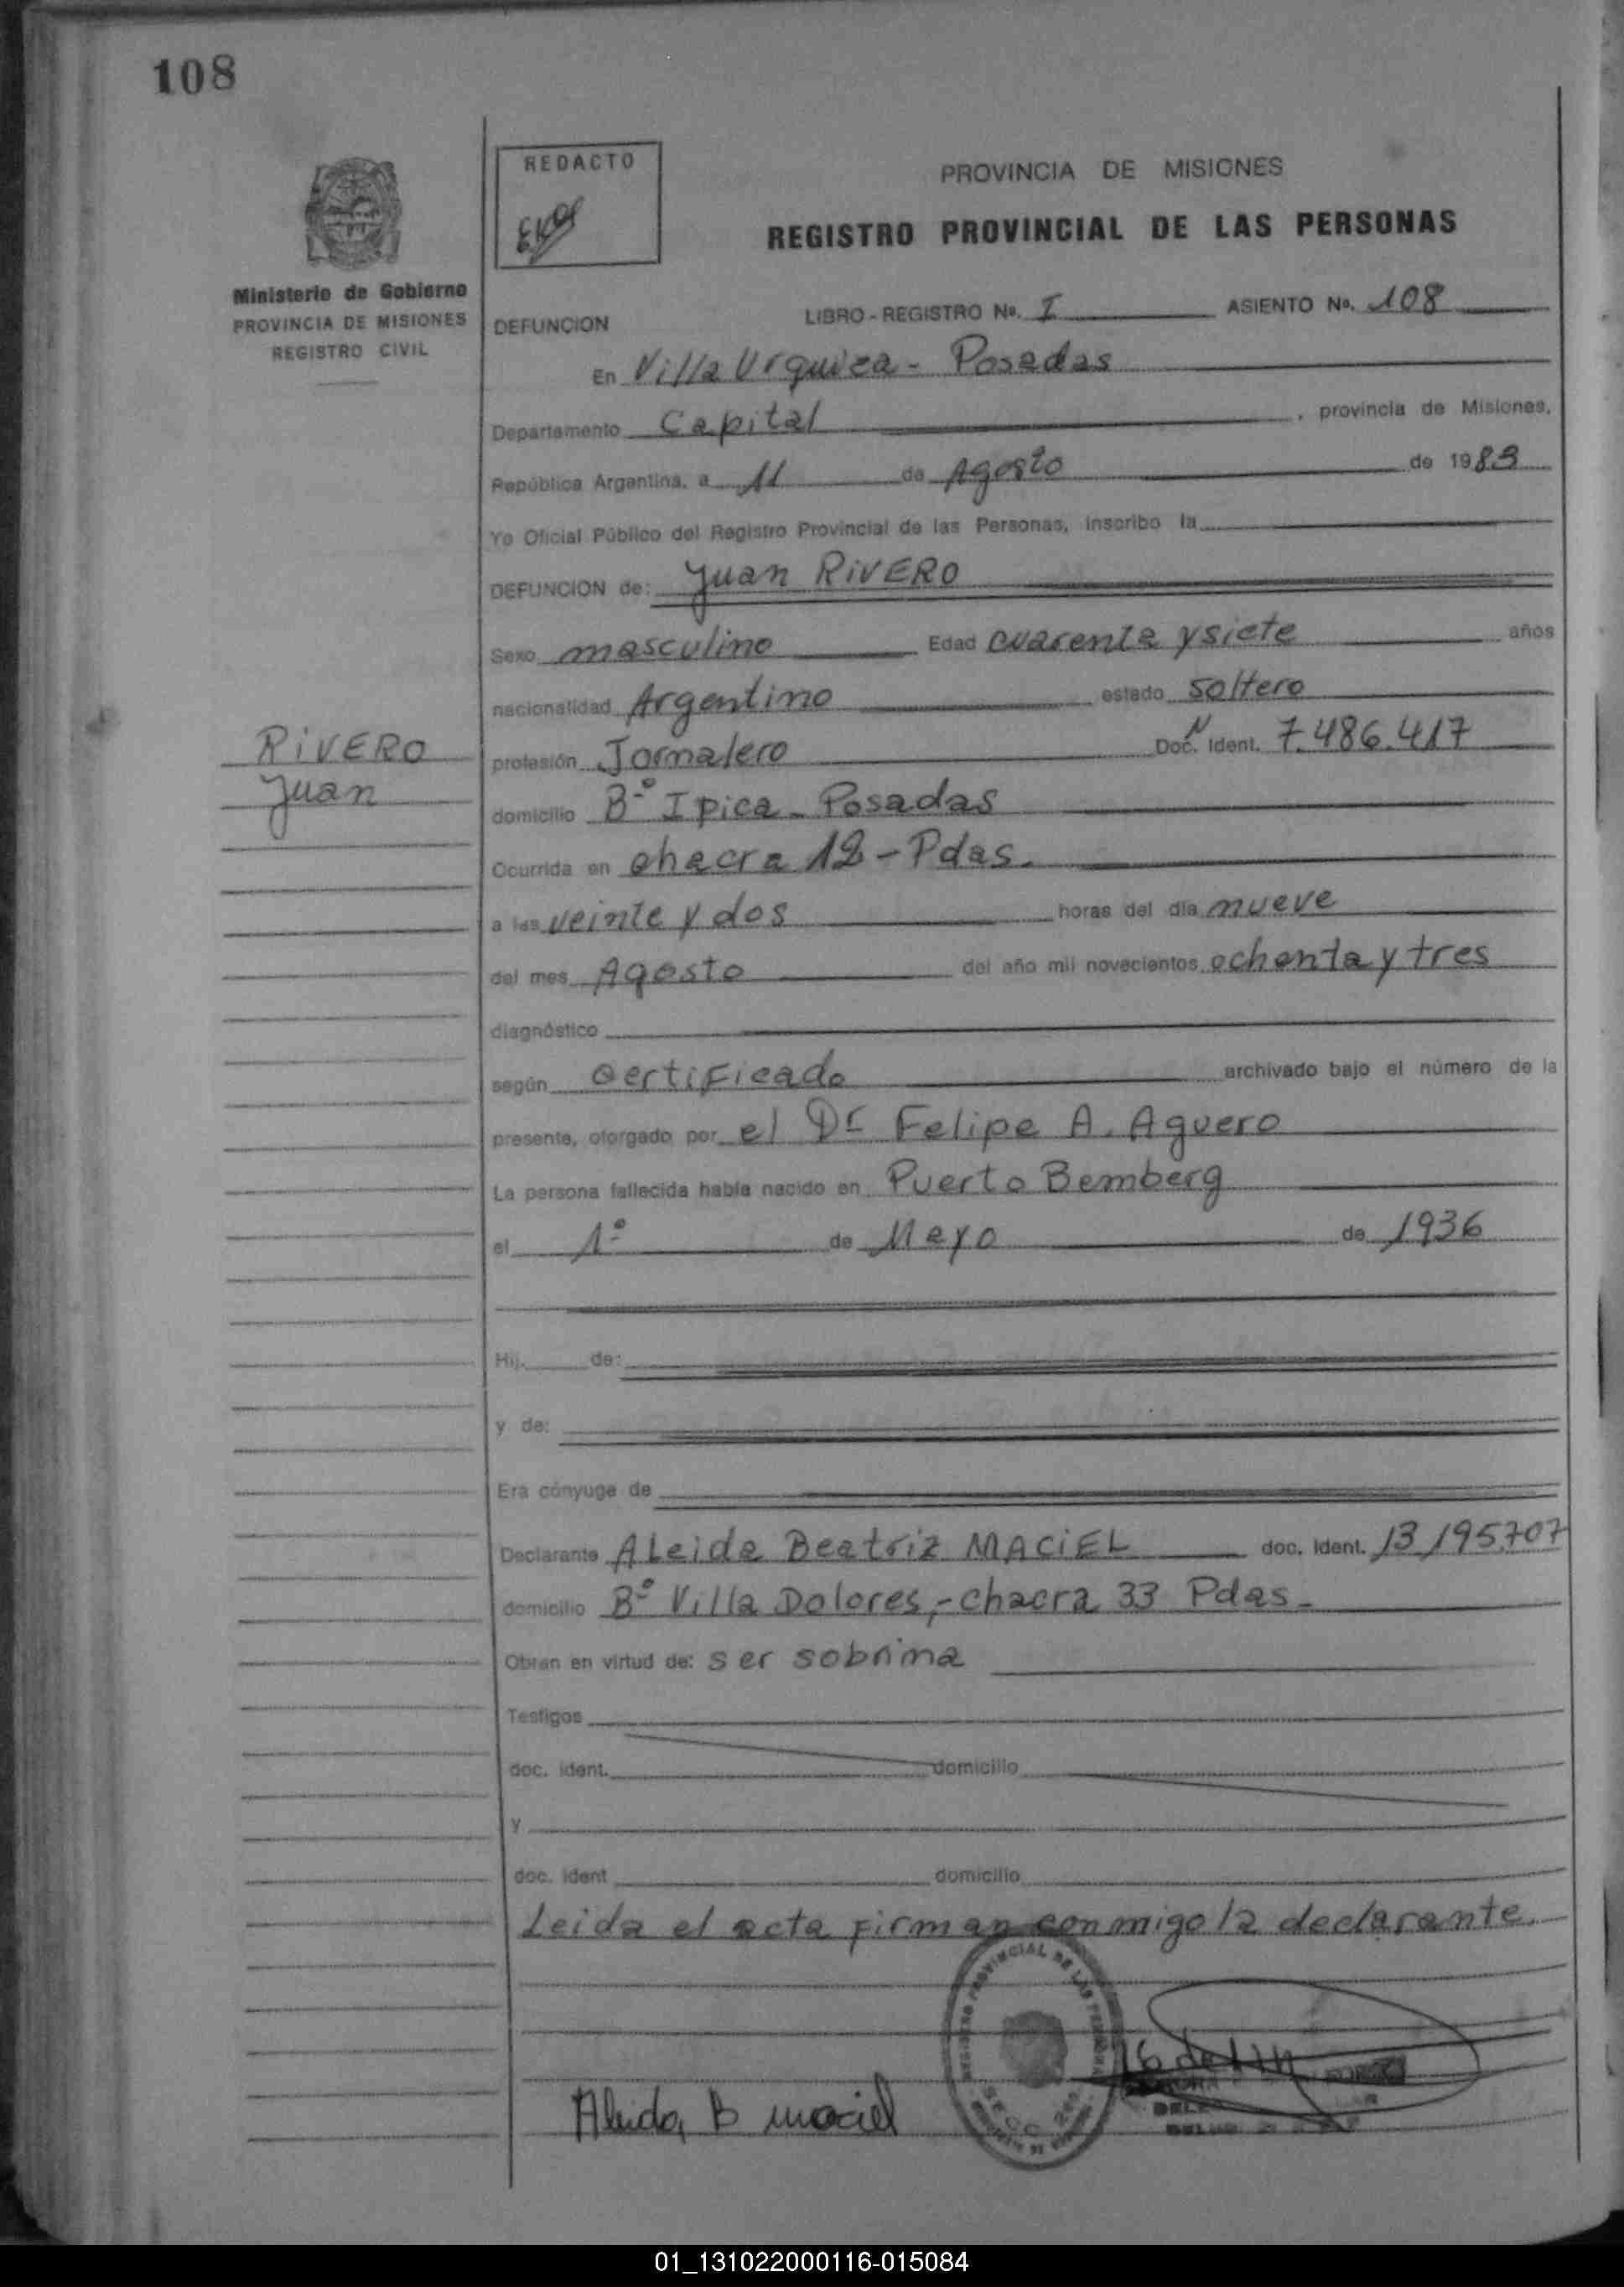 108
REDACTO
PROVINCIA DE MISIONES
REGISTRO PROVINCIAL DE LAS PERSONAS
Ministerio de Gobierno
PROVINCIA DE MISIONES
REGISTRO CIVIL
DEFUNCION LIBRO - REGISTRO No. I ASIENTO No. 108
En Villa Urquiza - Posadas
Departamento Capital, provincia de Misiones,
República Argentina, a 11 de Agosto de 1983
Yo Oficial Público del Registro Provincial de las Personas, inscribo la
DEFUNCION de: Juan RIVERO
Sexo masculino Edad cuarenta y siete años
nacionalidad Argentino estado soltero
RIVERO
Juan
profesión Jornalero Doc. Ident. 7.486.417
domicilio Bº Ipica - Posadas
Ocurrida en chacra 12 - Pdas.
a las veinte y dos horas del día nueve
del mes Agosto del año mil novecientos ochenta y tres
diagnóstico
según certificado archivado bajo el número de la
presente, otorgado por el Dr Felipe A. Aguero
La persona fallecida había nacido en Puerto Bemberg
el 1º de Mayo de 1936
Hij. de:
y de:
Era cónyuge de
Declarante ALeida Beatriz MACIEL doc. Ident. 13.195.707
domicilio Bº Villa Dolores,- chacra 33 Pdas.
Obran en virtud de: ser sobrina
Testigos
doc. ident. domicilio
y
doc. ident domicilio
Leida el acta firman conmigo la declarante.
REGISTRO PROVINCIAL DE LAS PERSONAS
Aleida B maciel
01_131022000116-015084